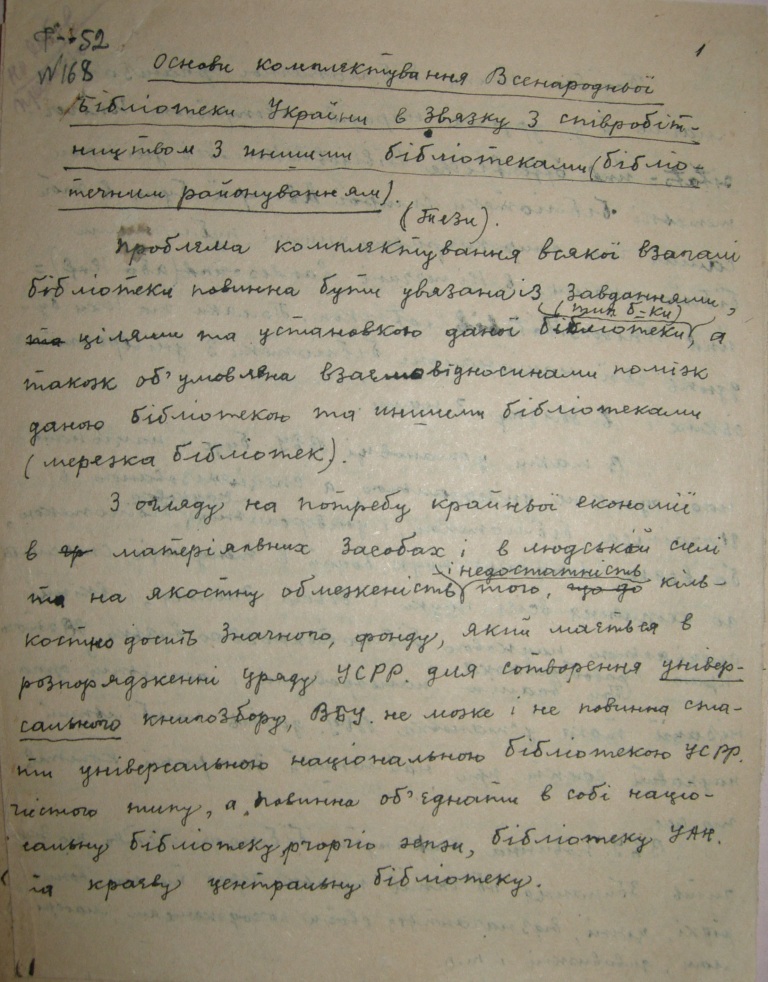 Ф-52
№168
1
Основи комплектування Всенародньої
Бібліотеки України в звязку з співробіт-
ництвом з иншими бібліотеками (бібліо-
течним районуванням).
(Тези).
Проблема комплектування всякої взагалі
бібліотеки повинна бути увязана із завданнями,
(тип б-ки)
та цілями та установкою даної бібліотеки, а
також об'умовлена взаємовідносинами поміж
даною бібліотекою та иншими бібліотеками
(мережа бібліотек).
З огляду на потребу крайньої економії
в матеріяльних засобах і в людській силі
і недостатність
та на якостну обмеженість того, що до кіль-
костно досить значного, фонду, який мається в
розпорядженні уряду УСРР. для сотворення універ-
сального книгозбору, ВБУ. не може і не повинна ста-
ти універсальною національною бібліотекою УСРР.
чистого типу, а повинна об'єднати в собі націо-
нальну бібліотеку, бібліотеку УАН.
та краєву центральну бібліотеку.